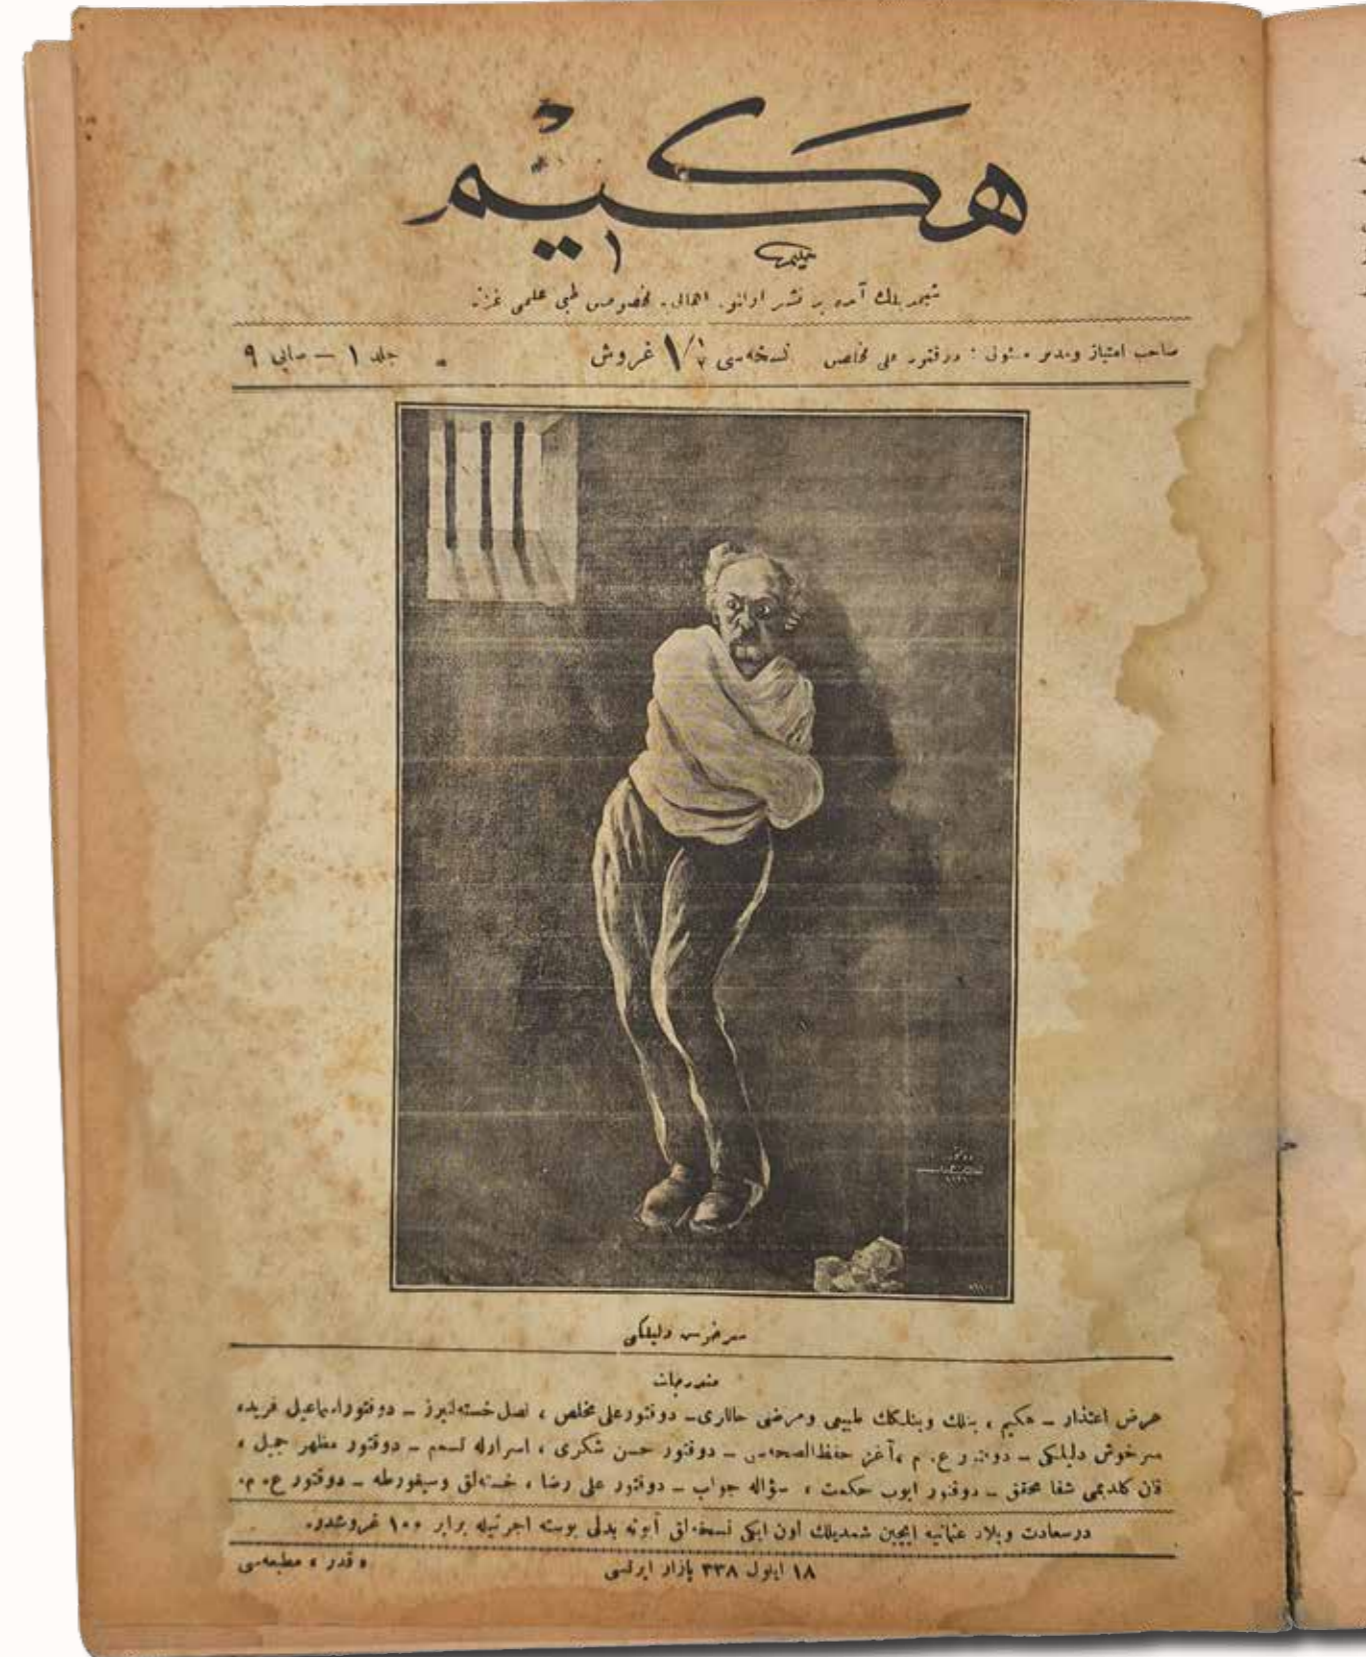 هكيم
شيمديلك آيده بر نشر اولنور اهالى‌يه مخصوص طبى علمى غزته
صاحب امتياز ومدير مسئولى : دوقتور على مخلص نسخه‌سى ٧ ١/٢ غروش جلد ١ — صايى ٩
سرخوش دليلكى
مندرجات
عرض اعتذار — هكيم ، بنلك وبنلكك طبيعى ومرضى حاللرى — دوقتور على مخلص ، نصل خسته‌لنيرز — دوقتور اسماعيل فريد ،
سرخوش دليلكى — دوقتور ع. م ، آغز حفظ الصحه‌سى — دوقتور حسن شكرى ، اسرارله تسمم — دوقتور مظهر جميل ،
قان كلديمى شفا محقق — دوقتور ايوب حكمت ، سؤاله جواب — دوقتور على رضا ، خسته‌لق وسيغورطه — دوقتور ع. م.
درسعادت وبلاد عثمانيه ايچين شمديلك اون ايكى نسخه‌لق آبونه بدلى پوسته اجرتيله برابر ١٠٠ غروشدر.
١٨ ايلول ٣٣٨ پازار ايرتسى
« قدر » مطبعه‌سى